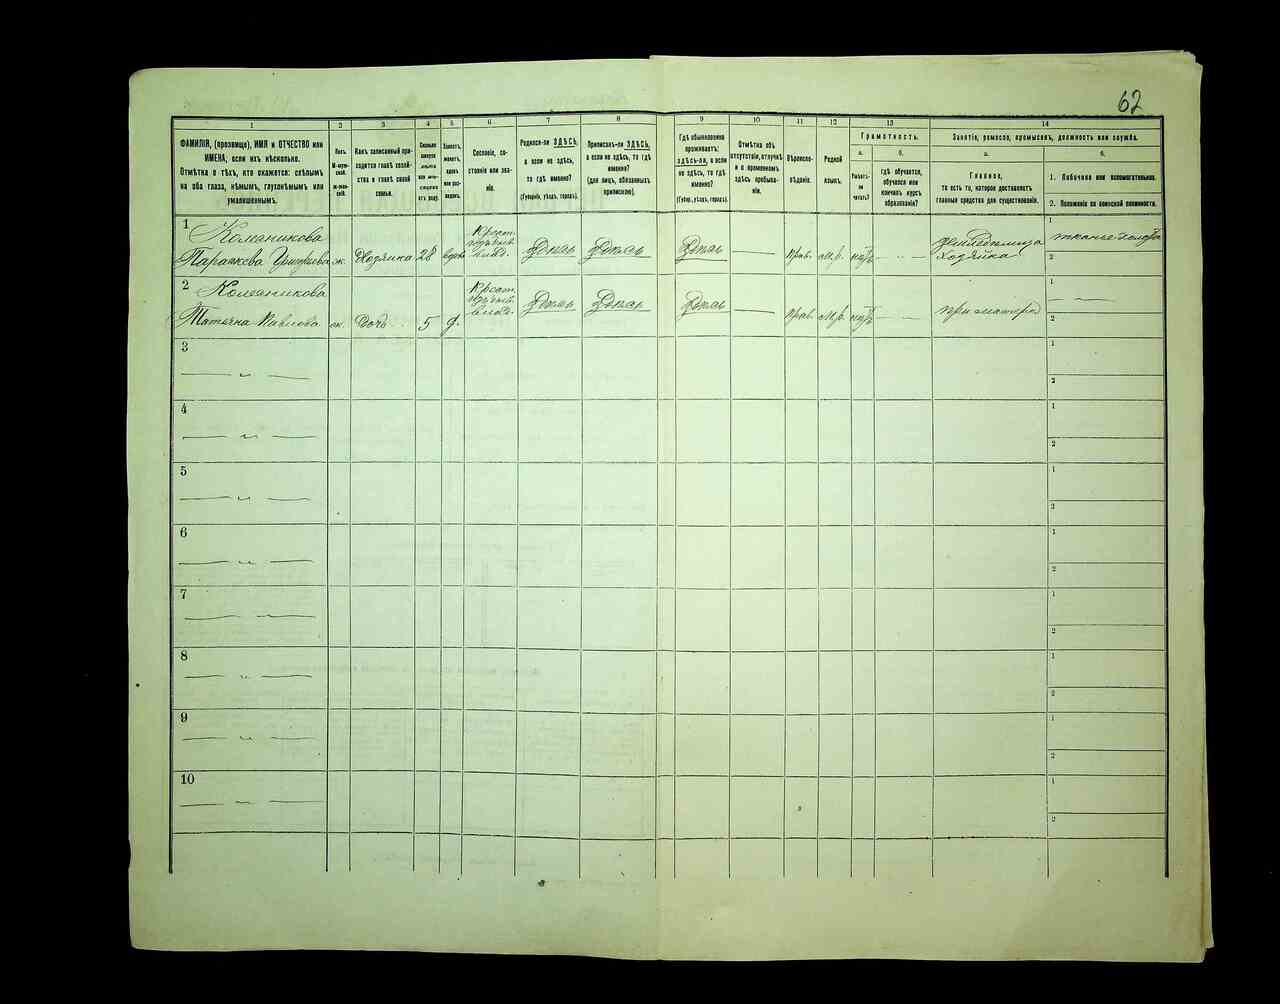 62
1
2
3
4
5
6
7
8
9
10
11
12
13
14
ФАМИЛІЯ, (прозвище), ИМЯ и ОТЧЕСТВО или
ИМЕНА, если ихъ нѣсколько.
Отмѣтка о тѣхъ, кто окажется: слѣпымъ
на оба глаза, нѣмымъ, глухонѣмымъ или
умалишеннымъ.
Полъ.
М-муж-
ской.
Ж-жен-
скій.
Какъ записанный при-
ходится главѣ хозяй-
ства и главѣ своей
семьи.
Сколько
минуло
лѣтъ
или мѣ-
сяцевъ
отъ роду.
Холостъ,
женатъ,
вдовъ
или раз-
веденъ.
Сословіе, со-
стояніе или зва-
ніе.
Родился-ли ЗДѢСЬ,
а если не здѣсь,
то гдѣ именно?
(Губернія, уѣздъ, городъ).
Приписанъ-ли ЗДѢСЬ,
а если не здѣсь, то гдѣ
именно?
(для лицъ, обязанныхъ
припискою).
Гдѣ обыкновенно
проживаетъ:
здѣсь-ли, а если
не здѣсь, то гдѣ
именно?
(Губер., уѣздъ, городъ).
Отмѣтка объ
отсутствіи, отлучкѣ
и о временномъ
здѣсь пребыва-
ніи.
Вѣроиспо-
вѣданіе.
Родной
языкъ.
Грамотность.
а.
Умѣетъ-
ли
читать?
б.
гдѣ обучается,
обучался или
кончилъ курсъ
образованія?
Занятіе, ремесло, промыселъ, должность или служба.
а.
Главное,
то есть то, которое доставляетъ
главныя средства для существованія.
б.
1. Побочное или вспомогательное.
2. Положеніе по воинской повинности.
1
Параскева ж. Хозяйка 28 Здѣсь Здѣсь Здѣсь — Прав. нѣтъ — " —
Хозяйка
1
2
2
Татьяна Павлова ж. Дочь 5 д. Здѣсь Здѣсь Здѣсь — Прав. нѣтъ при матери
1 — —
2
3
— " —
1
2
4
— " —
1
2
5
— " —
1
2
6
— " —
1
2
7
— " —
1
2
8
— " —
1
2
9
— " —
1
2
10
— " —
1
2